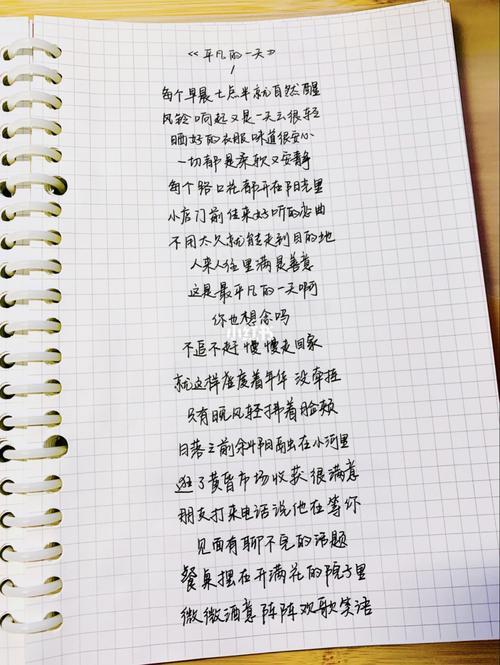 《平凡的一天》
每个早晨七点半就自然醒
风铃响起又是一天云很轻
晒好的衣服味道很安心
一切都是柔软又安静
每个路口花都开在阳光里
小店门前传来好听的恋曲
不用太久就能走到目的地
人来人往里满是善意
这是最平凡的一天啊
你也想念吗
小红书
不追不赶慢慢走回家
就这样虚度着年华 没牵挂
只有晚风轻拂着脸颊
日落之前斜阳融在小河里
逛了黄昏市场收获很满意
朋友打来电话说他在等你
见面有聊不完的话题
餐桌摆在开满花的院子里
微微酒意阵阵欢歌笑语